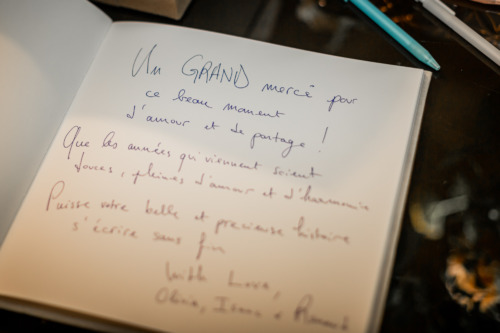 Un GRAND merci pour
ce beau moment
d'amour et de partage !
Que les années qui viennent soient
douces, pleines d'amour et d'harmonie
Puisse votre belle et precieuse histoire
s'écrire sans fin
With Love,
Olivia, &